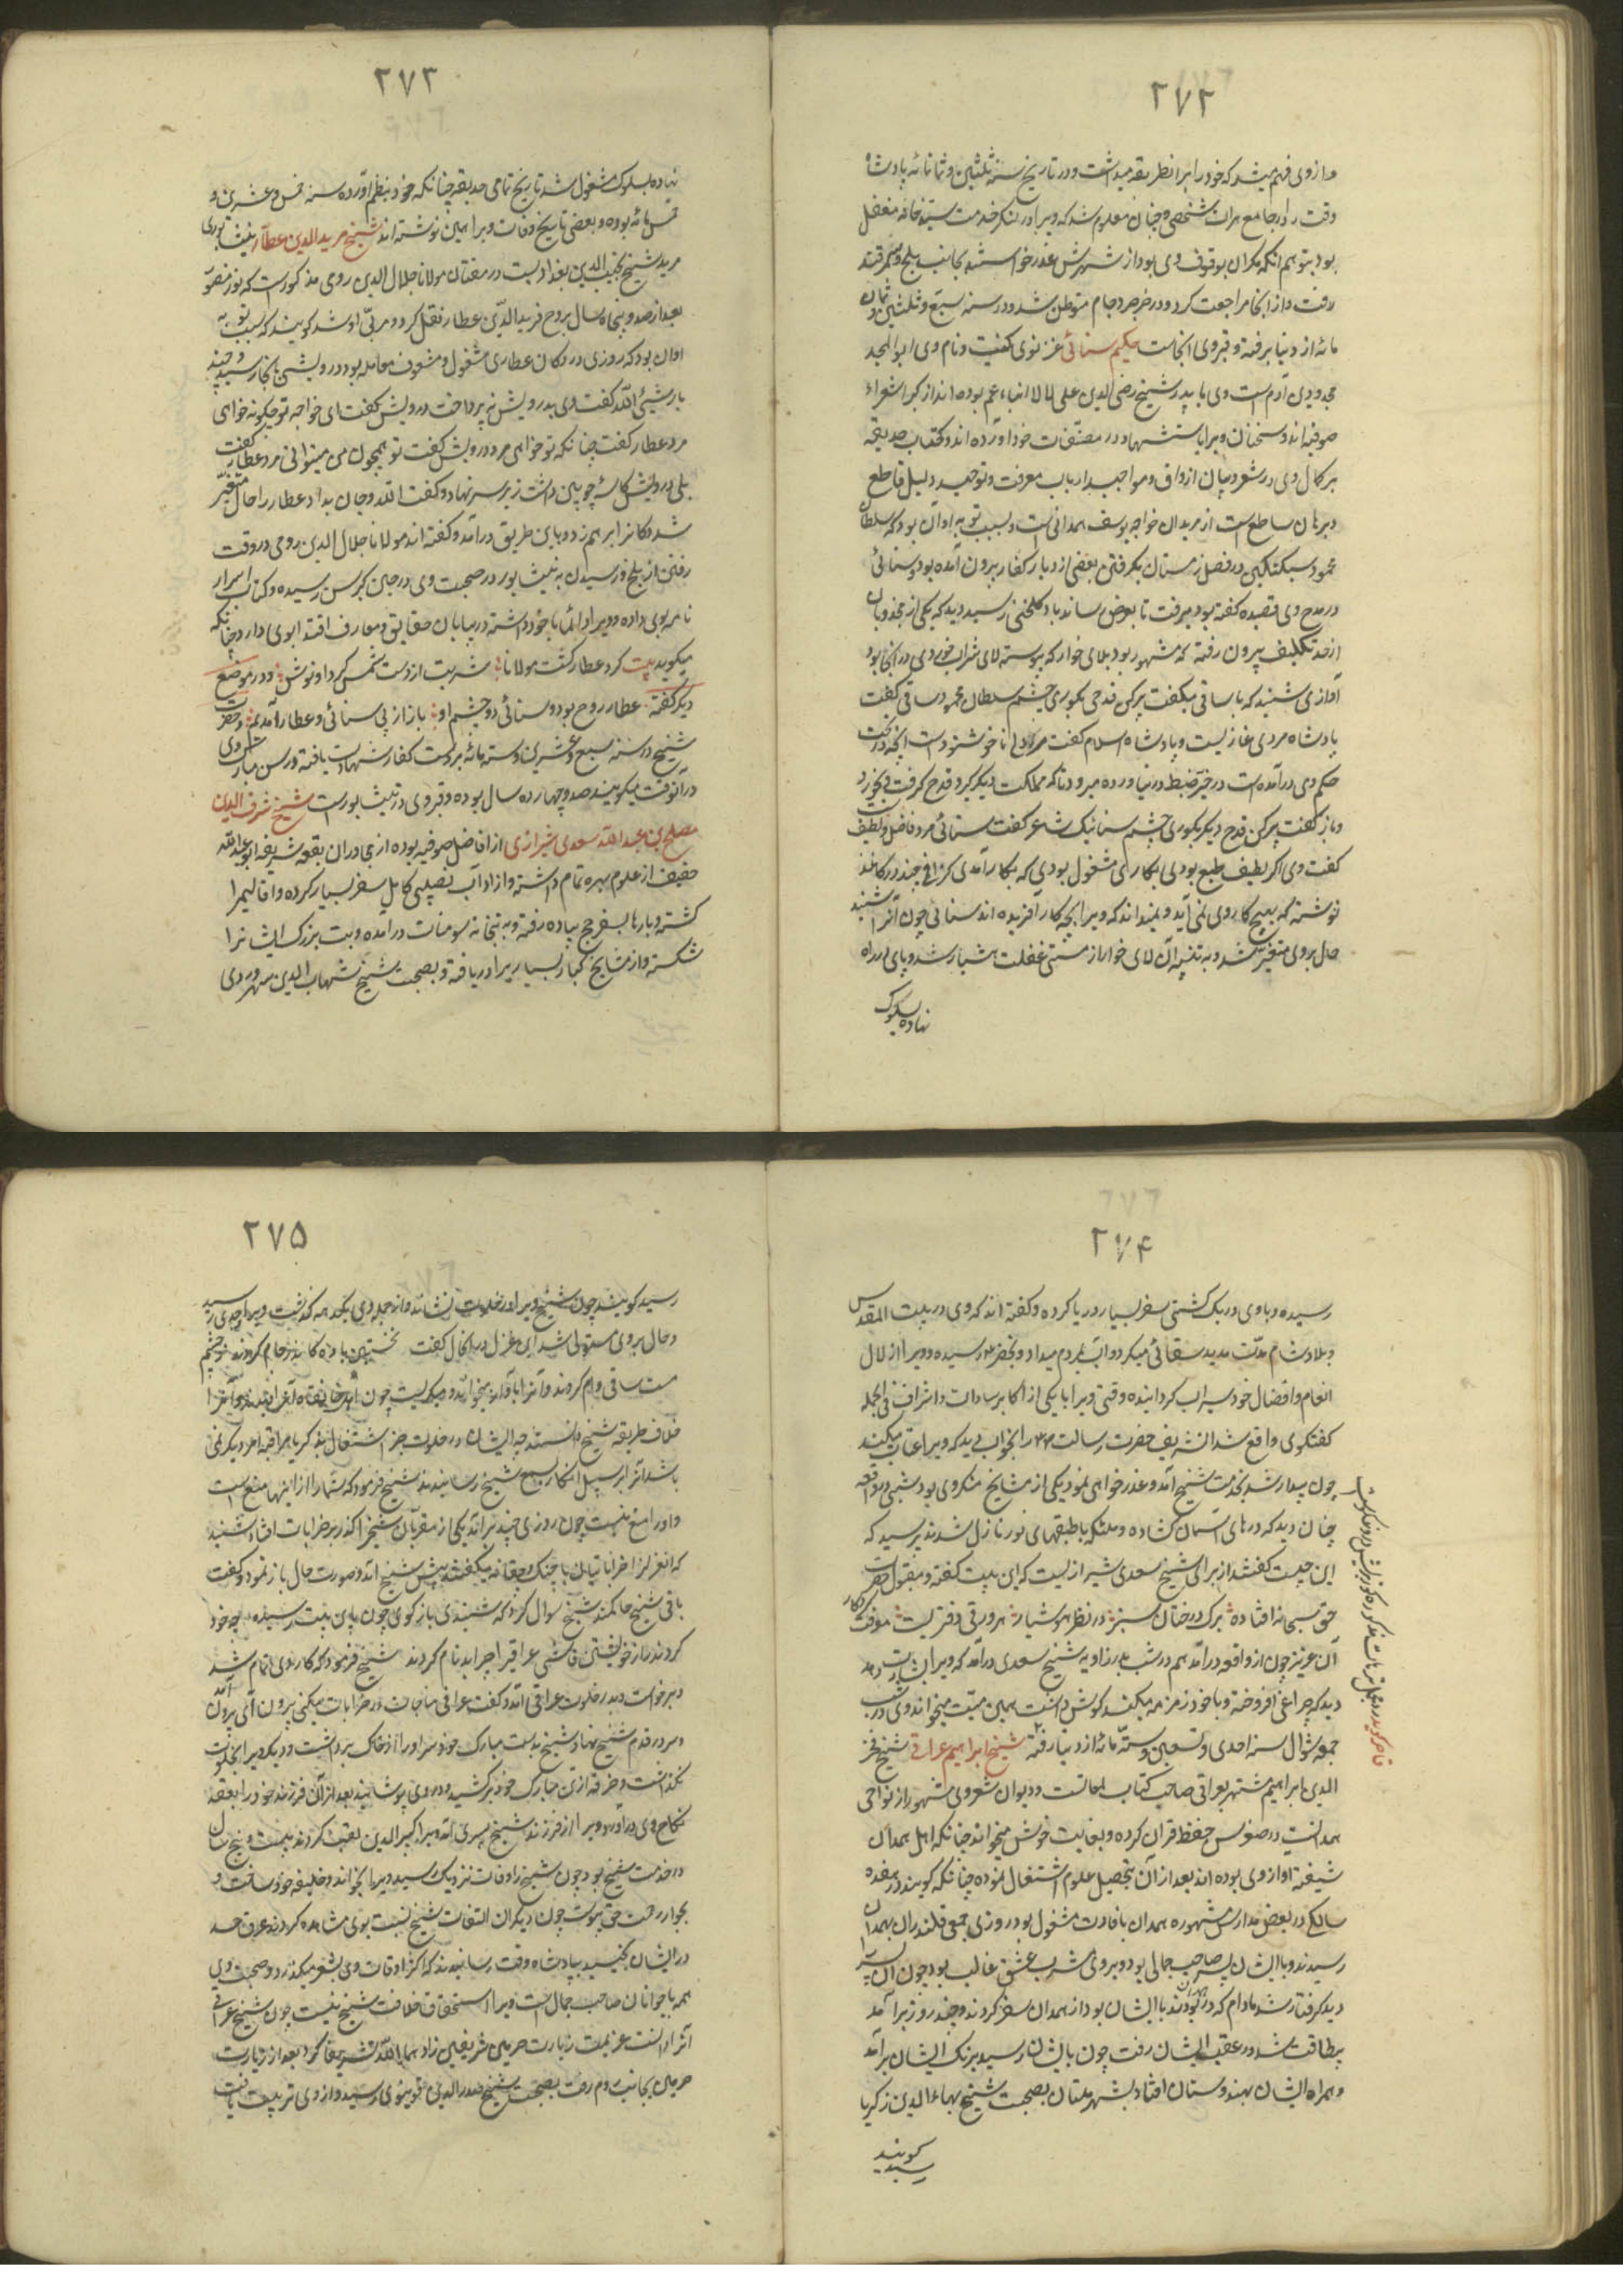 ۲۷۲
و از وی فهم میشد که خود را برانطریقه میداشت و در تاریخ سنهٔ ثلثین و ثمانمائه پادشاه
وقت را در جامع هرات شخصی و چنان معلوم شد که ویرا در لنکر خدمت سید خانه مفضل
بود بتوهم آنکه مکر آن بوقوف وی بود از شهرش عذر خواستند بجانب بلخ و سمرقند
رفت و از آنجا مراجعت کرد و در خرجرد جام متوطن شد و در سنه سبع و ثلثین و ثمان
مائه از دنیا برفته و قبر وی آنجاست حکیم سنائی غزنوی کنیت و نام وی ابوالمجد
مجدود بن آدم است وی با پدر شیخ رضی الدین علی لالا ابناء عم بوده اند از کبراء شعراء
صوفیه اند و سخنان ویرا باستشهاد در مصنّفات خود آورده اند و کتاب حدیقه
بر کمال وی در شعر و بیان اذواق و مواجید ارباب معرفت و توحید دلیل قاطع
و برهان ساطع است از مریدان خواجه یوسف همدانی است و سبب توبهٔ او آن بود که سلطان
محمود سبکتکین در فصل زمستان بکرفتن بعضی از دیار کفار بیرون آمده بود و سنائی
در مدح وی قصیده کفته بود میرفت تا بعرض رساند بدر کلخنی رسید دید که یکی از مجذوبان
از حد تکلیف بیرون رفته که مشهور بود بلای خوار که پیوسته لای شراب خوردی در آنجا بود
آوازی شنید که با ساقی میکفت پر کن قدحی بکوری چشم سلطان محمود ساقی کفت
پادشاه مردی غازیست و پادشاه اسلام کفت مردکی ناخوشنودست آنچه در تحت
حکم وی در آمده است در حیز ضبط در نیاورده میرود تا که مملکت دیکر کیرد قدح کرفت و بخورد
و باز کفت پر کن قدح دیکر بکوری چشم سنائیک شاعر کفت سنائی مرد فاضل و لطیف است
کفت وی اکر لطیف طبع بودی بکاری مشغول بودی که بکار آمدی کزافی چند در کاغذ
نوشته که بهیچ کار وی نمی آید و نمیداند که ویرا بچه کار آفریده اند سنائی چون آنرا شنید
حال بر وی متغیر شد و به تنبیه آن لای خوار از مستی غفلت هشیار شد و پای در راه
نهاده بسلوک
۲۷۳
نهاده بسلوک مشغول شد تاریخ تمامی حدیقه چنانکه خود بنظم آورده سنه خمس و عشرین و
خمسمائه بوده و بعضی تاریخ وفات ویرا همین نوشته اند شیخ فریدالدین عطار نیشابوری
مرید شیخ مجدالدین بغدادیست در سخنان مولانا جلال الدین رومی مذکورست که نور منصور
بعد از صد و پنجاه سال بروح فریدالدّین عطار نقل کرد و مربّی او شد کویند که سبب توبه
او آن بود که روزی در دکان عطاری مشغول و مشعوف معامله بود درویشی بآنجا رسید و چند
بار شیٔ الله کفت وی بدرویش نپرداخت درویش کفت ای خواجه تو چکونه خواهی
مرد عطار کفت چنانکه تو خواهی مرد درویش کفت تو همچون من میتوانی مرد عطار کفت
بلی درویش کاسهٔ چوبین داشت زیر سر نهاد و کفت الله و جان بداد عطار را حال متغیّر
شد دکانرا برهم زد و باین طریق در آمد و کفته اند مولانا جلال الدین رومی در وقت
رفتن از بلخ و رسیدن به نیشابور در صحبت وی در حین کبر سن رسیده و کتاب اسرار
نامه بوی داده و ویرا دائما با خود داشته در بیابان حقایق و معارف اقتدا بوی دارد چنانکه
میکوید بیت کرد عطار کشت مولانا شربت از دست شمس کرد او نوش و در موضع
دیکر کفته عطار روح بود و سنائی دو چشم او ما از پی سنائی و عطار آمدیم و حضرت
شیخ در سنه سبع و عشرین و ستمائه بر دست کفار شهادت یافته و سن مبارک وی
در آنوقت میکویند صد و چهارده سال بوده و قبر وی در نیشابورست شیخ شرف الدین
مصلح بن عبدالله سعدی شیرازی از افاضل صوفیه بوده از مجاوران بقعه شریفه ابو عبدالله
خفیف از علوم بهره تمام داشته و از آداب نصیبی کامل سفر بسیار کرده و اقالیم را
کشته و بارها بسفر حج پیاده رفته و به بتخانه سومنات در آمده و بت بزرک ایشانرا
شکسته و از مشایخ کبار بسیار یرا دریافته و بصحبت شیخ شهاب الدین سهروردی
۲۷۴
رسیده و با وی در یک کشتی سفر بسیار دریا کرده و کفته اند که وی در بیت المقدس
و بلاد شام مدّت مدید سقائی میکرد و آب بمردم میداد و بخضر رسیده و ویرا از زلال
انعام و افضال خود سیراب کردانیده وقتی ویرا با یکی از اکابر سادات و اشراف فی الجمله
کفتکوی واقع شد آن شریف حضرت رسالت را بخواب دید که ویرا عتاب میکند
چون بیدار شد بخدمت شیخ آمد و عذر خواهی نمود یکی از مشایخ منکر وی بود شبی در واقعه
چنان دید که درهای آسمان کشاده و ملئکه با طبقهای نور نازل شدند پرسید که
این چیست کفتند از برای شیخ سعدی شیرازیست که این بیت کفته و مقبول حضرت
حق سبحانه افتاده برک درختان سبز در نظر هوشیار هر ورقی دفتریست معرفت کردکار
آن عزیز چون از واقعه در آمد هم در شب بدر زاویه شیخ سعدی در آمد که ویرا بشارت دهد
دید که چراغی افروخته و با خود زمزمه میکند کوش داشت همین بیت میخواند وی در شب
جمعه شوال سنه احدی و تسعین و ستّمائه از دنیا رفته شیخ ابراهیم عراقی شیخ فخر
الدین ابراهیم مشتهر بعراقی صاحب کتاب لمعاتست و دیوان شعر وی مشهور از نواحی
همدانست در صغر سن حفظ قران کرده و بغایت خوش میخوانده چنانکه اهل همدان
شیفته آواز وی بوده اند بعد از آن بتحصیل علوم اشتغال نموده چنانکه کویند در هفده
سالکی در بعض مدارس مشهوره همدان بافادت مشغول بود روزی جمعی قلندران بهمدان
رسیدند و با ایشان پسر صاحب جمالی بود و بر وی مشرب عشق غالب بود چون آن پسر را
دید کرفتار شد مادام که در همدان بودند با ایشان بود از همدان سفر کردند و چند روز برآمد
بیطاقت شد و در عقب ایشان رفت چون بایشان رسید برنک ایشان برآمد
و همراه ایشان بهندوستان افتاد بشهر ملتان بصحبت شیخ بهاءالدین زکریا
رسید کویند
۲۷۵
رسید کویند چون شیخ ویرا در خلوت نشاند و از چله وی یکدهه کذشت ویرا وجدی رسید
و حال بر وی مستولی شد این غزل در آنحال کفت نخستین باده کاندر جام کردند ز چشم
مست ساقی وام کردند و آنرا بآواز میخواند و میکریست چون اهل خانقاه آنرا بدیدند و آنرا
خلاف طریقه شیخ دانستند چه ایشان در خلوت جز اشتغال بذکر یا مراقبه امر دیکر نمی
باشد آنرا بر سبیل انکار بسمع شیخ رسانیدند شیخ فرمود که شما را از اینها منع است
و او را منع نیست چون روزی چند برآمد یکی از مقربان شیخ را کذر بر خرابات افتاد شنید
که آنغزل را خراباتیان با چنک و چغانه میکفتند پیش شیخ آمد و صورت حال باز نمود و کفت
باقی شیخ حاکمند شیخ سوال کرد که شنیدی باز کوی چون باین بیت رسید که چو خود
کردند راز خویشتن فاش عراقی را چرا بدنام کردند شیخ فرمود که کار وی تمام شد
و برخواست و بدر خلوت عراقی آمد و کفت عراقی مناجات در خرابات میکنی بیرون آی بیرون آمد
و سر در قدم شیخ نهاد شیخ بدست مبارک خود سر او را از خاک برداشت و دیکر ویرا بخلوت
نکذاشت و خرقه از تن مبارک خود برکشید و در وی پوشانید بعد از آن فرزند خود را بعقد
نکاح وی در آورد و ویرا از فرزند شیخ پسری آمد ویرا کبیرالدین لقب کردند بیست و پنج سال
در خدمت شیخ بود چون شیخ را وفات نزدیک رسید ویرا بخواند و خلیفه خود ساخت و
بجوار رحمت حق پیوست چون دیکران التفات شیخ نسبت بوی مشاهده کردند عرق حسد
در ایشان بجنبید بپادشاه وقت رسانیدند که اکثر اوقات وی بشعر میکذرد و صحبت وی
همه با جوانان صاحب جمال است ویرا استحقاق خلافت شیخ نیست چون شیخ عراقی
آنرا دانست عزیمت زیارت حرمین شریفین زادهما الله تشریفا کرد بعد از زیارت
حرمین بجانب روم رفت بصحبت شیخ صدرالدین قونیوی رسید و از وی تربیت یافت